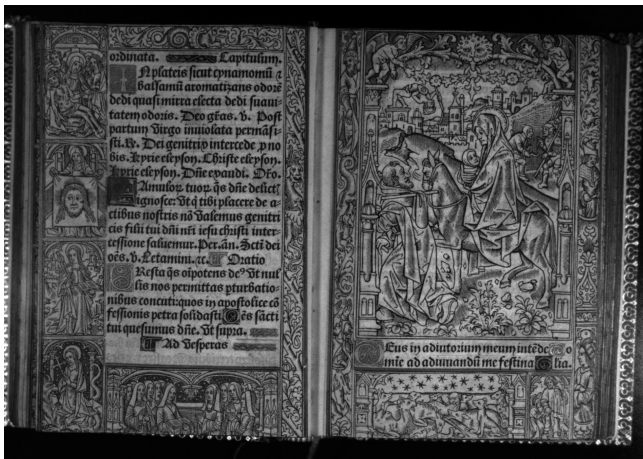 ordinata. Capitulum.
IN plateis sicut cynamomū ⁊
balsamū aromatizans odorē
dedi quasi mirra electa dedi suaui
tatem odoris. Deo gr̄as. v. Post
partum virgo inuiolata permāsi-
sti. R. Dei genitrix intercede ꝓ no
bis. kyrie eleyson. Christe eleyson.
kyrie eleyson. Dn̄e exaudi. Oro.
FAmuloꝝ tuoꝝ q̄s dn̄e delict'
ignosce: vt q̄ tibi placere de a-
ctibus nostris nō valemus genitri
cis filii tui dn̄i nr̄i iesu christi inter-
cessione saluemur. Per. an. Scti dei
oēs. v. Letamini. ⁊c. Oratio
PResta q̄s oīpotens de' vt nul
lis nos permittas ꝑturbatio-
nibus concuti: quos in apostolice cō
fessionis petra solidasti. Oēs sācti
tui quesumus dn̄e. vt supra.
Ad vesperas
DEus in adiutorium meum intēde
mīe ad adiuuandū me festina Glia.